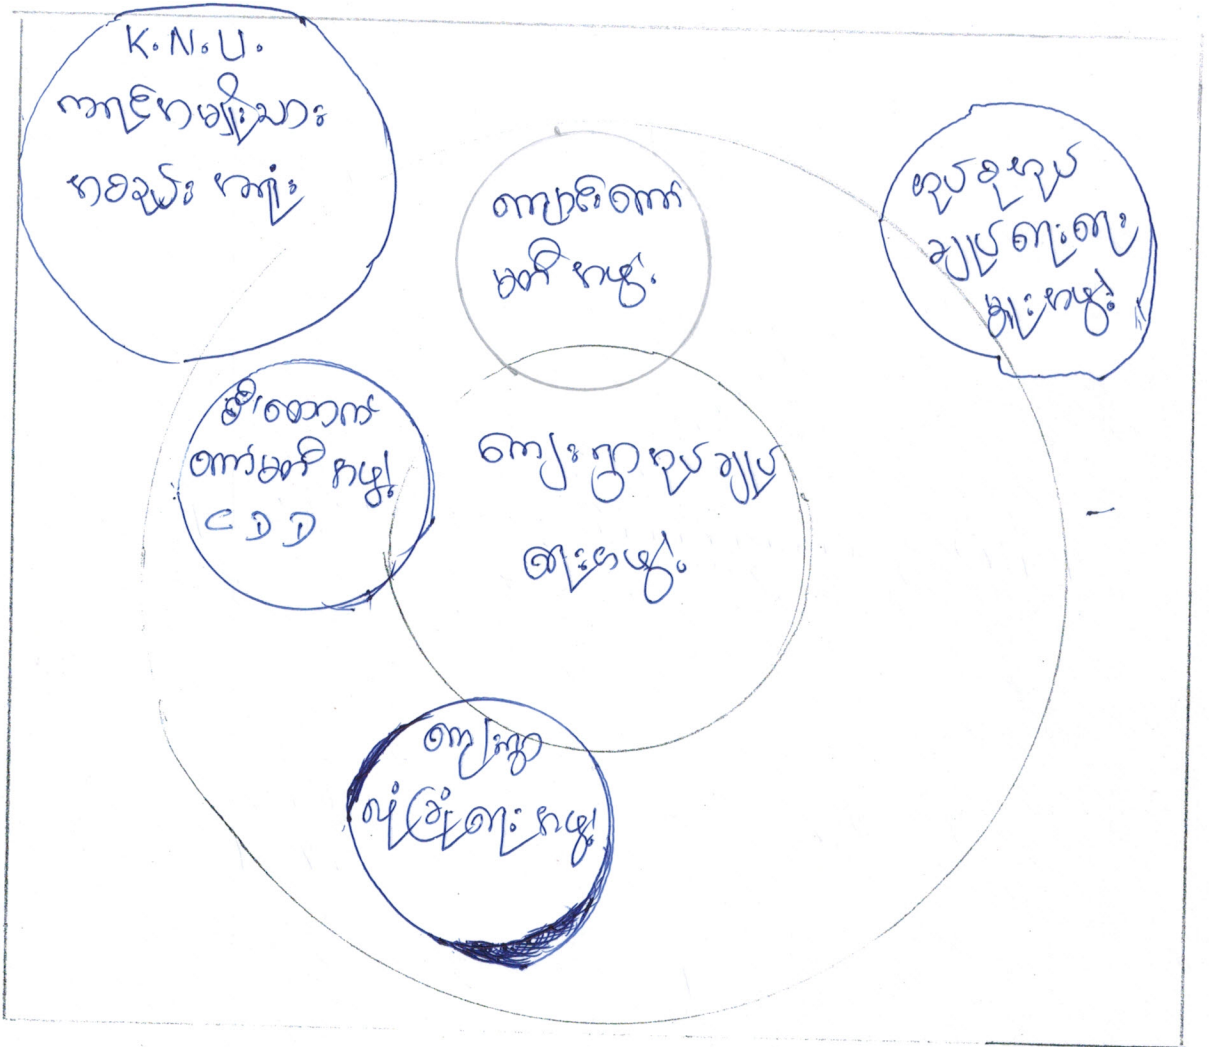 K.N.U.
ကရင်အမျိုးသား
အစည်း အရုံး
ကျောင်းကော်
မတီ အဖွဲ့
အုပ်စုအုပ်
ချုပ်ရေး
အဖွဲ့
မီးကော်မတီ အဖွဲ့
CDD
ကျေးရွာ အုပ် ချုပ်
ရေးအဖွဲ့
ကျေးရွာ
လုံခြုံရေး အဖွဲ့